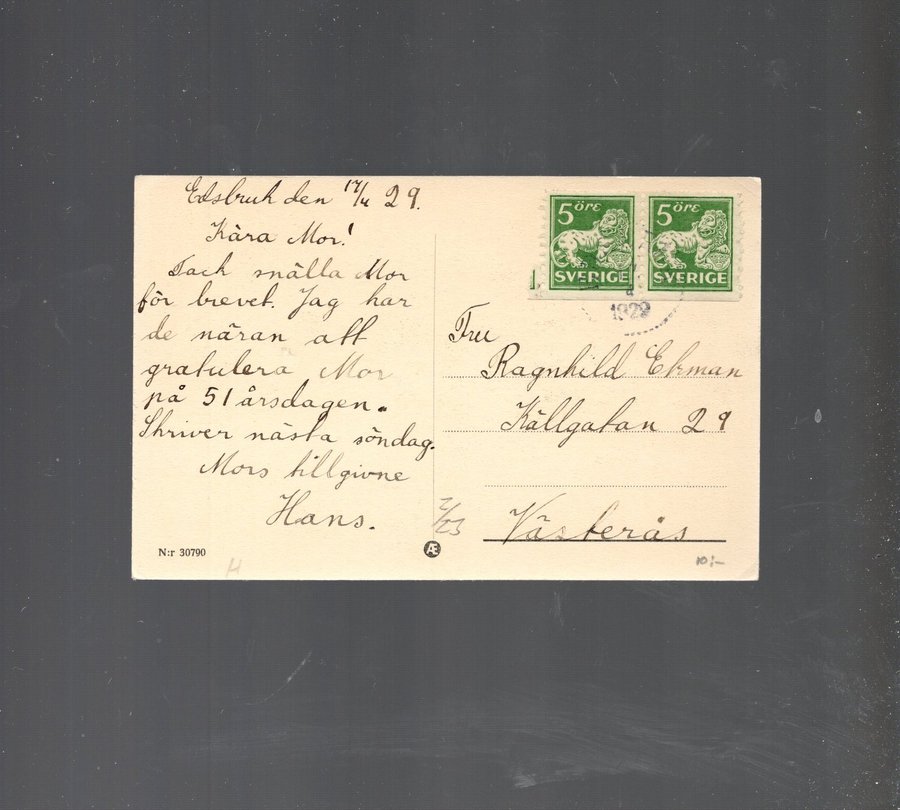 Edsbruk den 17/4 29.
Kära Mor!
Tack snälla Mor
för brevet. Jag har
de näran att
gratulera Mor
på 51 årsdagen.
Skriver nästa söndag.
Mors tillgivne
Hans.
N:r 30790
Æ
5 ÖRE
SVERIGE
5 ÖRE
SVERIGE
1.
1929
Fru
Ragnhild Ekman
Källgatan 29
Västerås
10:-